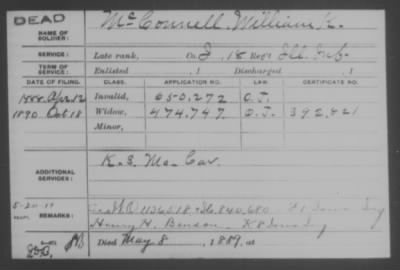 DEAD
McConnell, William K.
NAME OF SOLDIER:
SERVICE:
Late rank, Co. I, 18 Reg't Ill. Inf.
TERM OF SERVICE:
Enlisted , 1 Discharged , 1
DATE OF FILING. CLASS. APPLICATION NO. LAW. CERTIFICATE NO.
1888 Apr. 12 Invalid, 650,272 O.I.
1890 Oct 18 Widow, 474,747 O.I. 392,821
Minor,
ADDITIONAL SERVICES:
K. 3. Mo. Cav.
REMARKS:
5-20-19
1136518 840,680 Iowa Inf
Henry H. Benson K 8 Iowa Inf
Died May 8, 1889, at